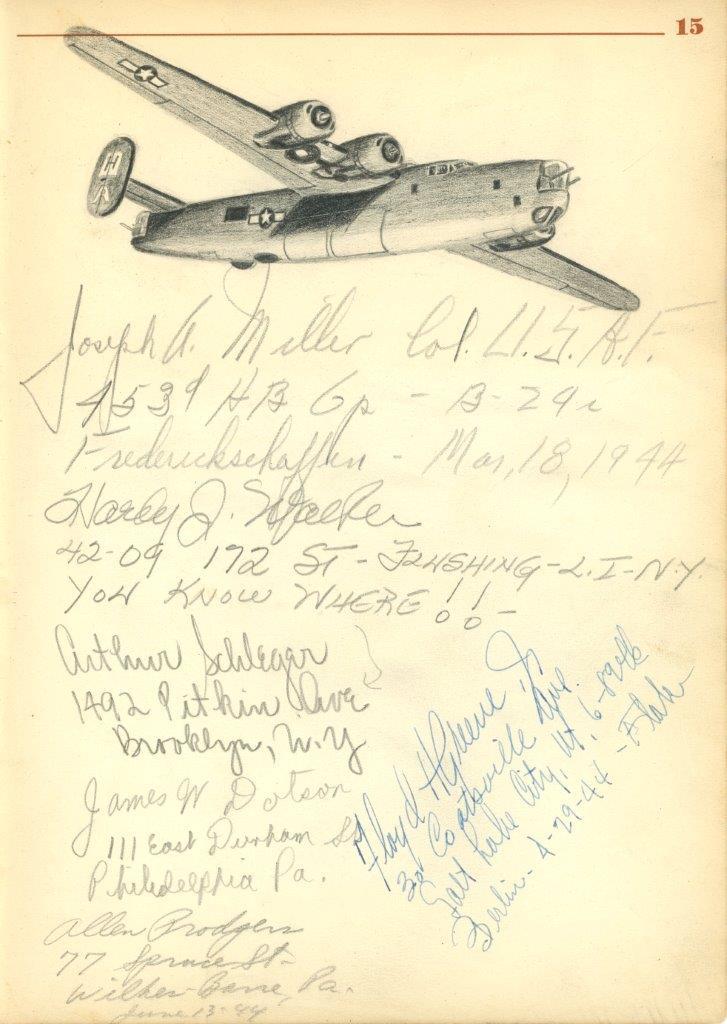 15
H
Joseph A. Miller Col. U.S.A.F.
453d HB Gp - B-24s
Frederickschaffen - Mar, 18, 1944
Harley J. Walker
42-09 172 ST - FLUSHING - L.I-N.Y.
YOU KNOW WHERE!! -
Arthur Schleger
1492 Pitkin Ave
Brooklyn, N.Y
James W Dotson
111 East Durham St
Philidelphia Pa.
Allen Brodgers
77 Spruce St-
Wilkes-Barre, Pa.
June 13-44
Floyd H Greene Jr
Coatsville Ave.
Salt Lake City, Ut.
Berlin - 4-29-44 - Flak